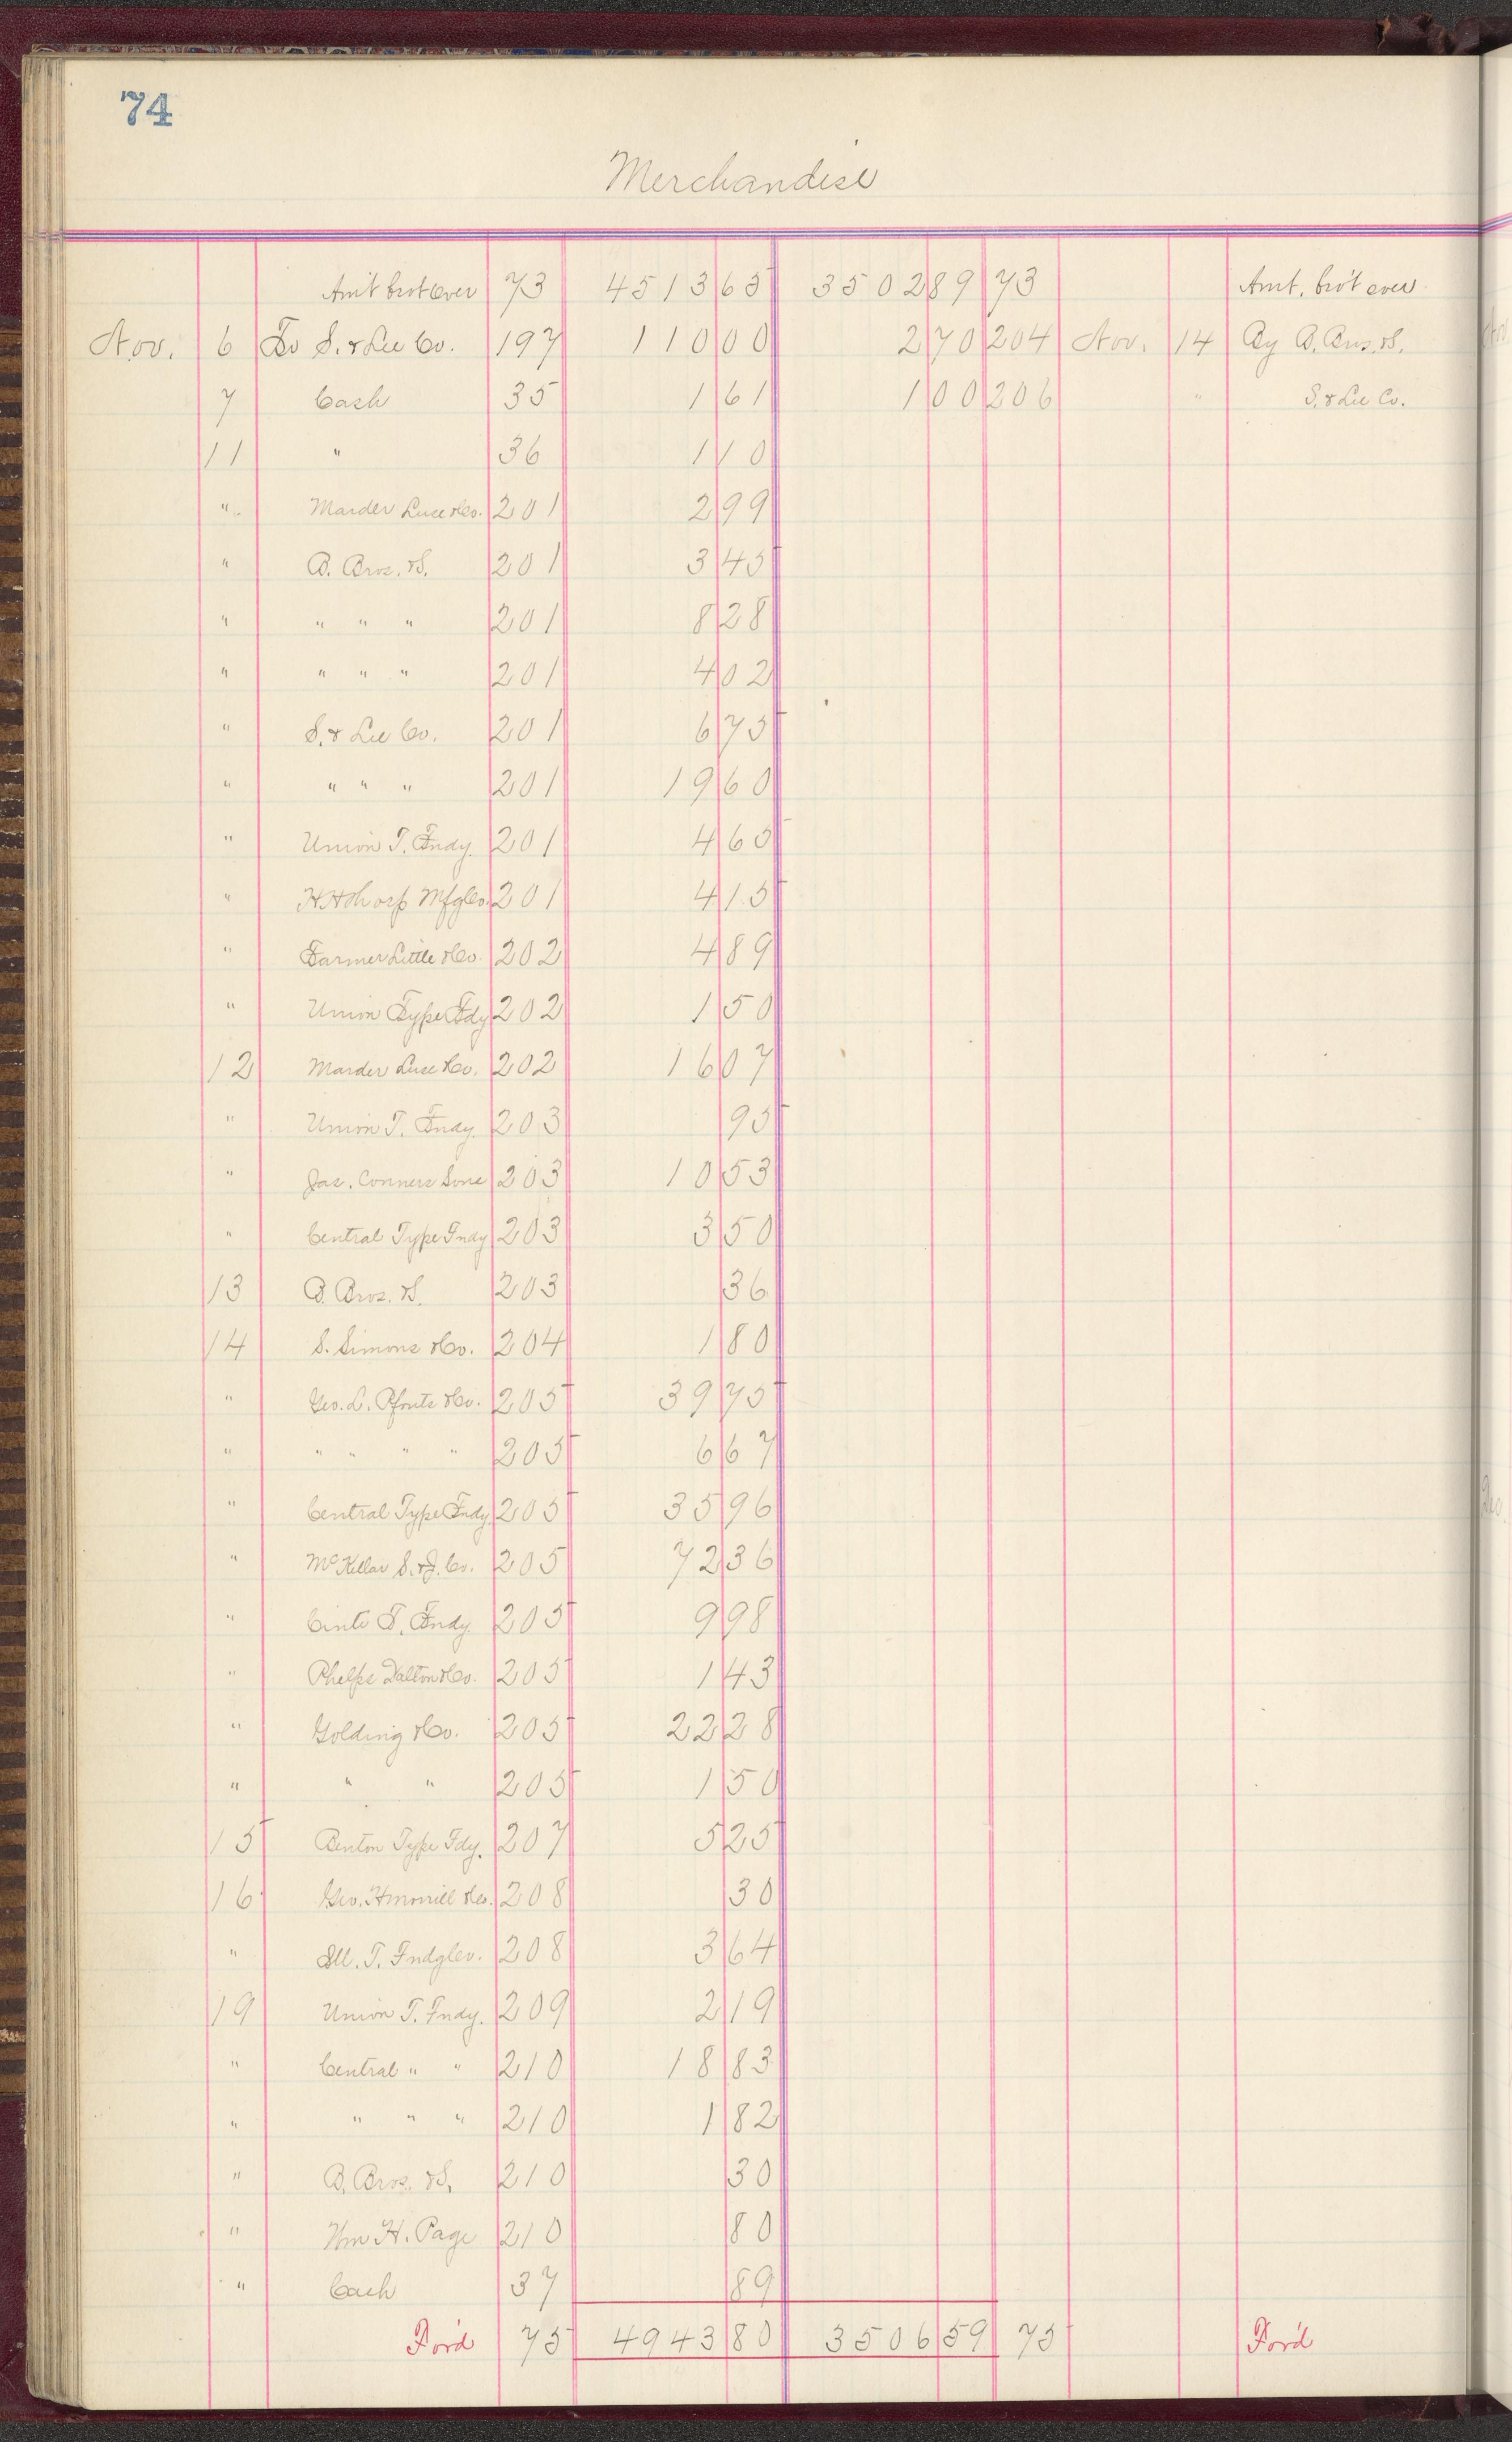 74
Merchandise
Am't brot over 73 4513 65 3502 89 73 Amt. bro't over
Nov. 6 To S. & Lee Co. 197 110 00 2 70 204 Nov. 14 By B. Bros. &S.
7 Cash 35 1 61 1 00 206 " S. & Lee Co.
11 " 36 1 10
" Marder Luse &Co. 201 2 99
" B. Bros. &S. 201 3 45
" " " " 201 8 28
" " " " 201 4 02
" S. & Lee Co. 201 6 75
" " " " 201 19 60
" Union T. Fndy. 201 4 65
" H H Thorp Mfg Co. 201 4 15
" Farmer Little &Co. 202 4 89
" Union Type Fdy 202 1 50
12 Marder Luse &Co. 202 16 07
" Union T. Fndy. 203 95
" Jas. Conners Sons 203 10 53
" Central Type Fndy 203 3 50
13 B. Bros. &S. 203 36
14 S. Simons &Co. 204 1 80
" Geo. L. Pfouts &Co. 205 39 75
" " " " " 205 6 67
" Central Type Fndy. 205 35 96
" McKellar S. & J. Co. 205 72 36
" Cinti T. Fndy. 205 9 98
" Phelps Dalton &Co. 205 1 43
" Golding &Co. 205 22 28
" " " 205 1 50
15 Benton Type Fdy. 207 5 25
16 Geo. H Morrill &Co. 208 30
" Ill. T. Fndg Co. 208 3 64
19 Union T. Fndy. 209 2 19
" Central " " 210 18 83
" " " " 210 1 82
" B. Bros. &S. 210 30
" Wm H. Page 210 80
" Cash 37 89
For'd 75 4943 80 3506 59 75 For'd